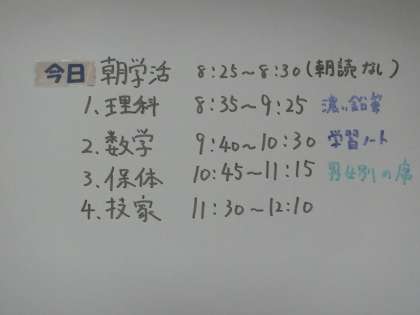 今日 朝学活 8:25~8:30(朝読なし)
1.理科 8:35~9:25 濃い鉛筆
2.数学 9:40~10:30 学習ノート
3.保体 10:45~11:15 男女別の席
4.技家 11:30~12:10